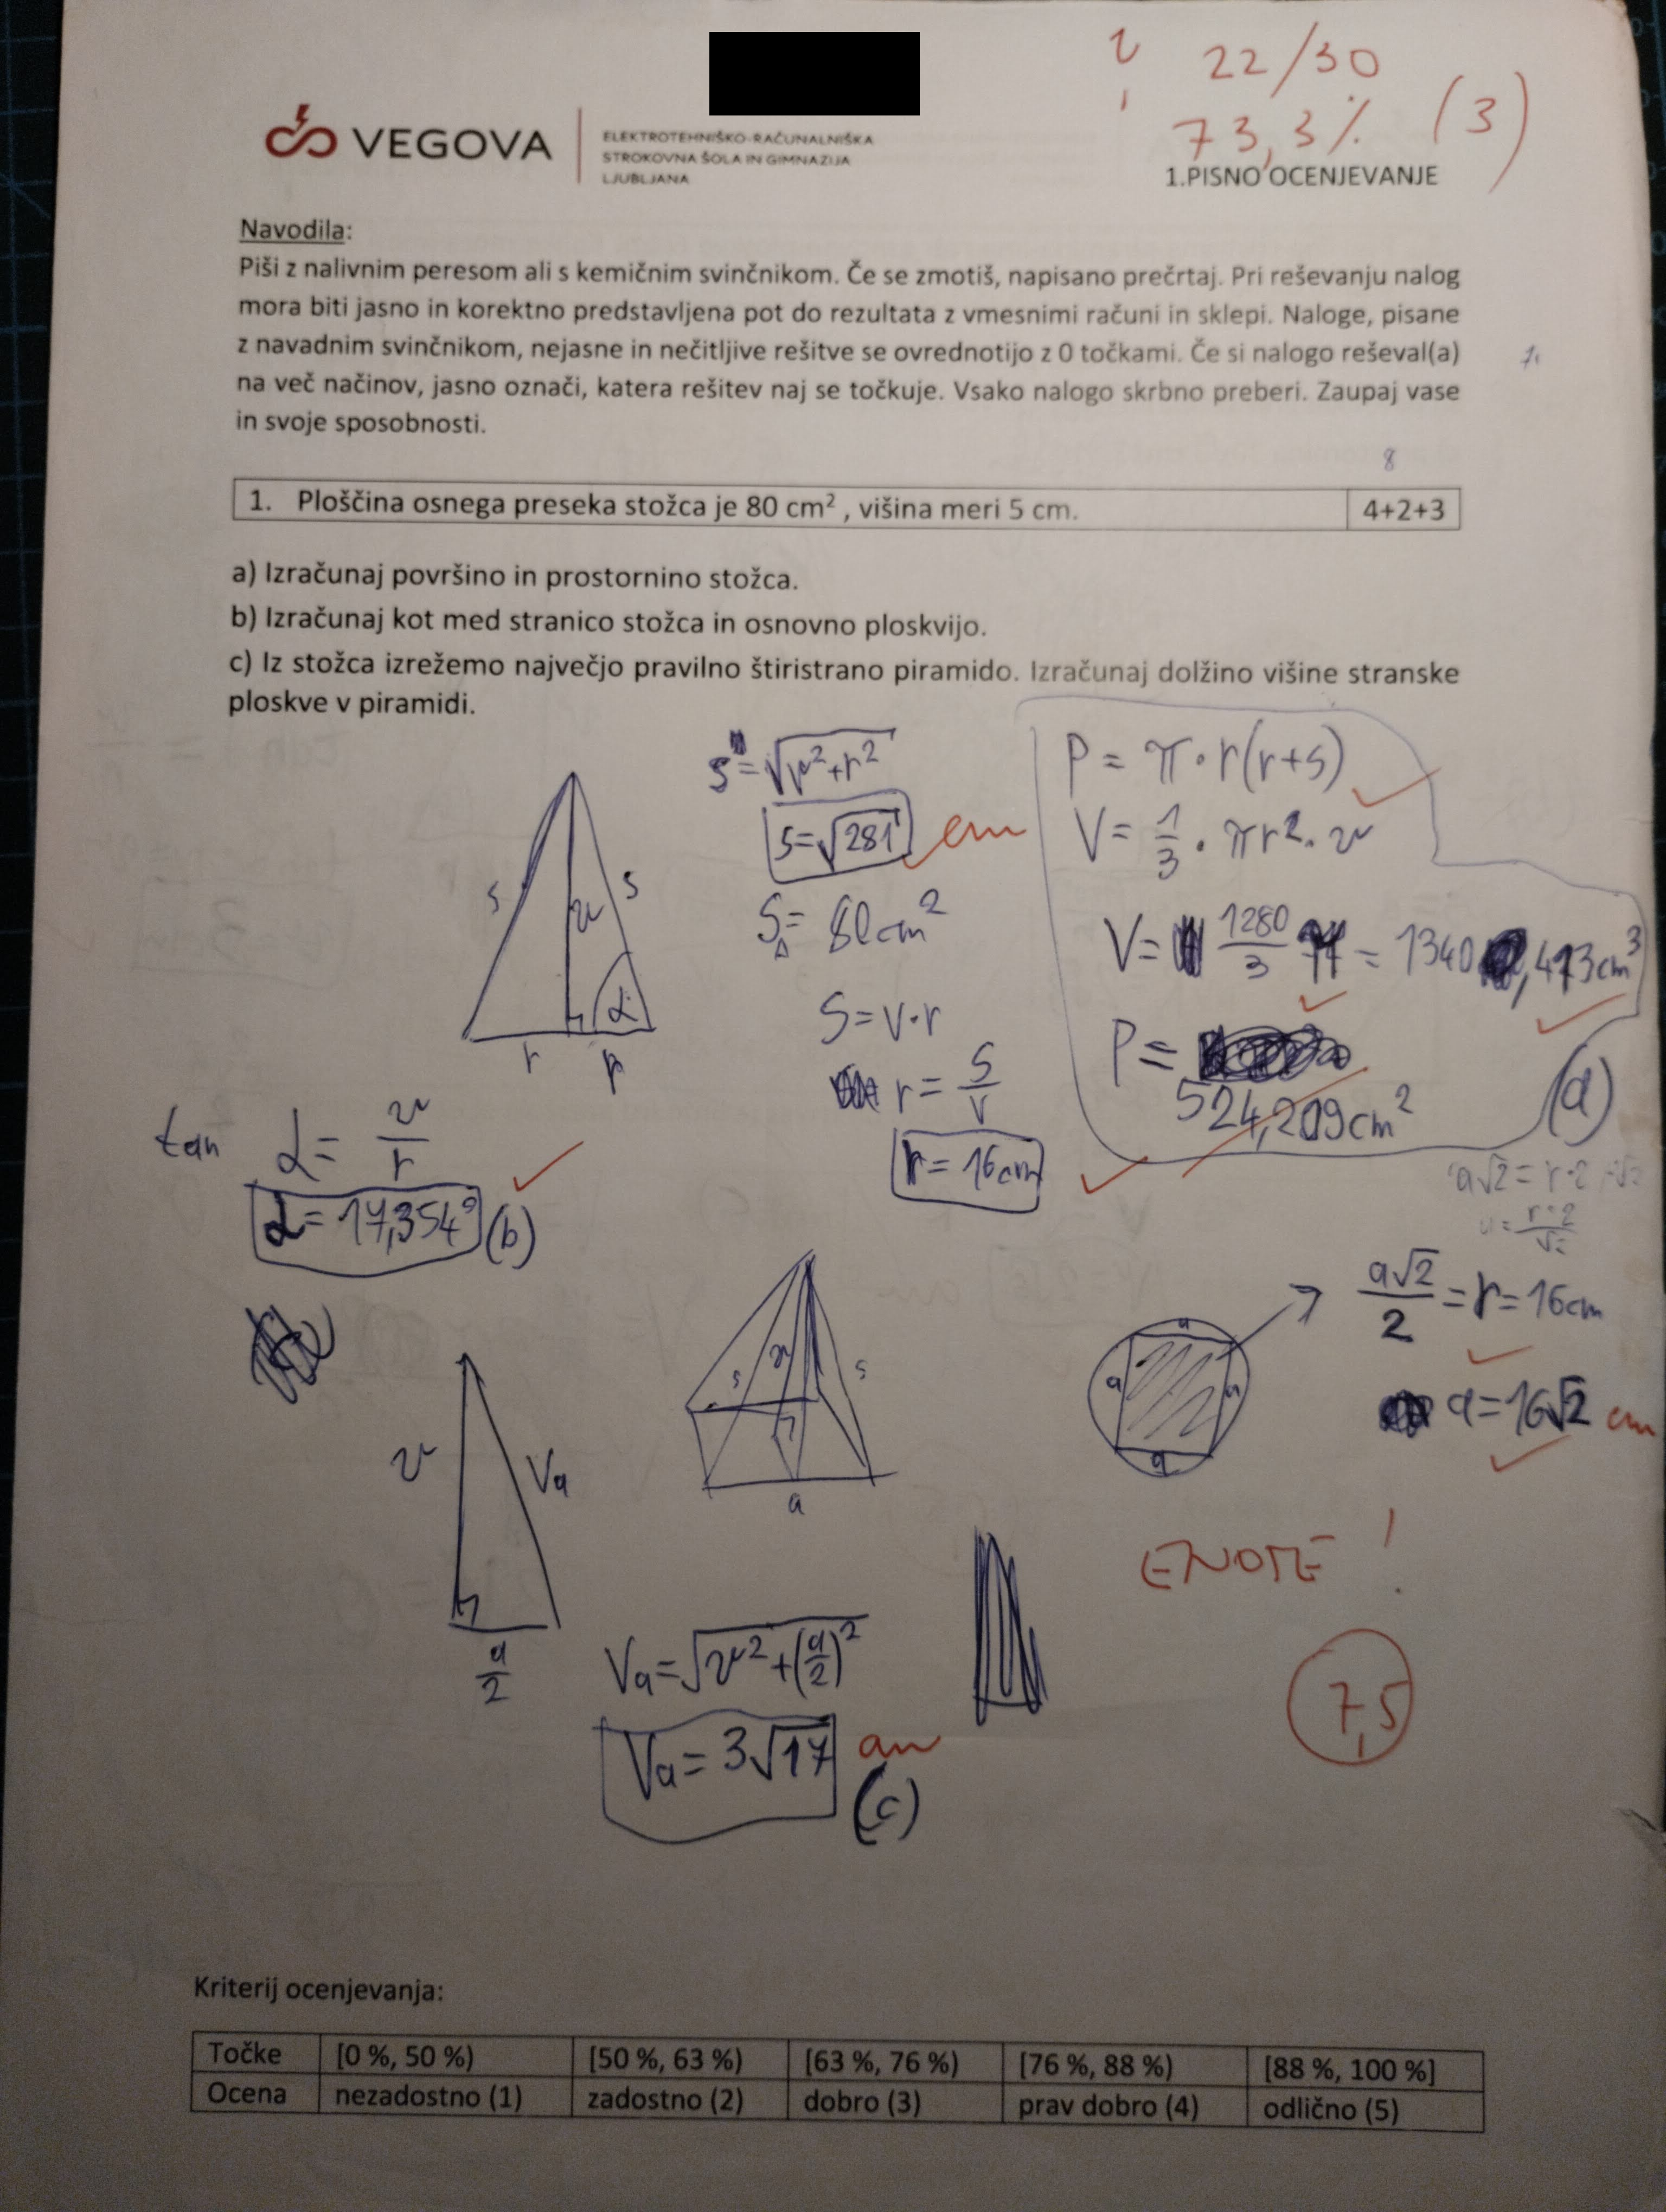 22/30
73,3% (3)
VEGOVA
ELEKTROTEHNIŠKO-RAČUNALNIŠKA
STROKOVNA ŠOLA IN GIMNAZIJA
LJUBLJANA
1.PISNO OCENJEVANJE
Navodila:
Piši z nalivnim peresom ali s kemičnim svinčnikom. Če se zmotiš, napisano prečrtaj. Pri reševanju nalog
mora biti jasno in korektno predstavljena pot do rezultata z vmesnimi računi in sklepi. Naloge, pisane
z navadnim svinčnikom, nejasne in nečitljive rešitve se ovrednotijo z 0 točkami. Če si nalogo reševal(a)
na več načinov, jasno označi, katera rešitev naj se točkuje. Vsako nalogo skrbno preberi. Zaupaj vase
in svoje sposobnosti.
8
1. Ploščina osnega preseka stožca je 80 cm², višina meri 5 cm. 4+2+3
a) Izračunaj površino in prostornino stožca.
b) Izračunaj kot med stranico stožca in osnovno ploskvijo.
c) Iz stožca izrežemo največjo pravilno štiristrano piramido. Izračunaj dolžino višine stranske
ploskve v piramidi.
s=√(v²+r²)
s=√281 cm
S△= 80cm²
S=v·r
r=S/v
r=16cm
P = π·r(r+s)
V = 1/3 · πr²·v
V= 1280/3 π = 1340,413cm³
P=
524,209cm²
(a)
s v s
α
r r
tan α = v/r
α=17,354° (b)
a√2/2 = r = 16cm
a=16√2 cm
s v s
a
a a a a
v Va
a/2
Va=√(v²+(a/2)²)
Va=3√17 cm
(c)
ENOTE!
7,5
Kriterij ocenjevanja:
Točke [0 %, 50 %) [50 %, 63 %) [63 %, 76 %) [76 %, 88 %) [88 %, 100 %]
Ocena nezadostno (1) zadostno (2) dobro (3) prav dobro (4) odlično (5)